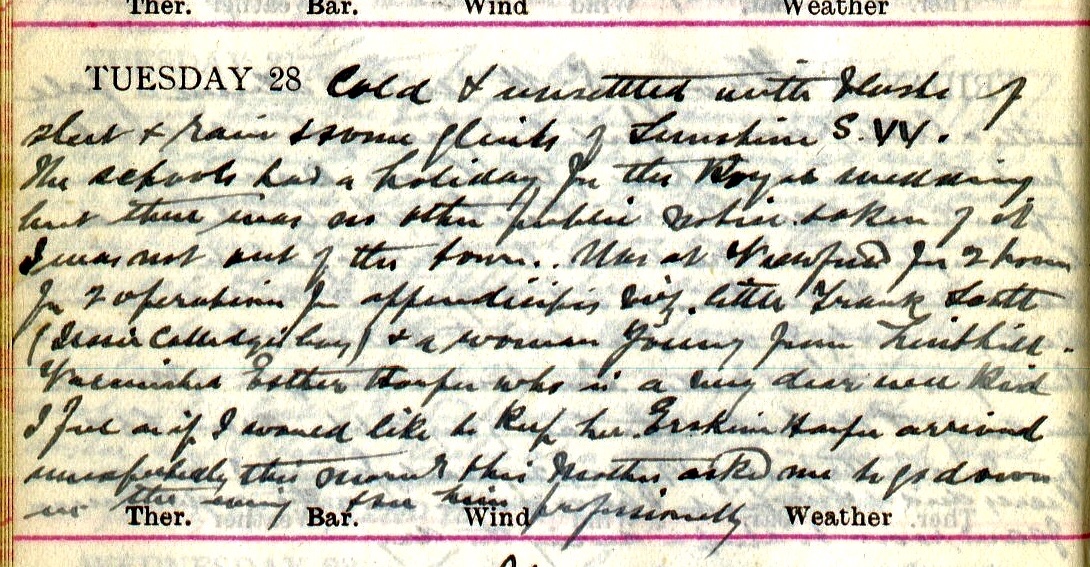 Ther. Bar. Wind Weather
TUESDAY 28 Cold & unsettled with of
sleet & rain & some glints of Sunshine S.W.
The schools had a holiday for the Royal wedding
but there was no other public notice taken of it
I was not out of the town. Was at for 2 hours
for 2 operations for appendicitis viz. little Frank Scott
( boy) & a woman Young from
Vaccinated Esther Harper who is a very dear wee kid
I feel as if I would like to keep her. Erskine Harper arrived
unexpectedly this morng & his Mother asked me to go down
in the evening & see him professionally
Ther. Bar. Wind Weather